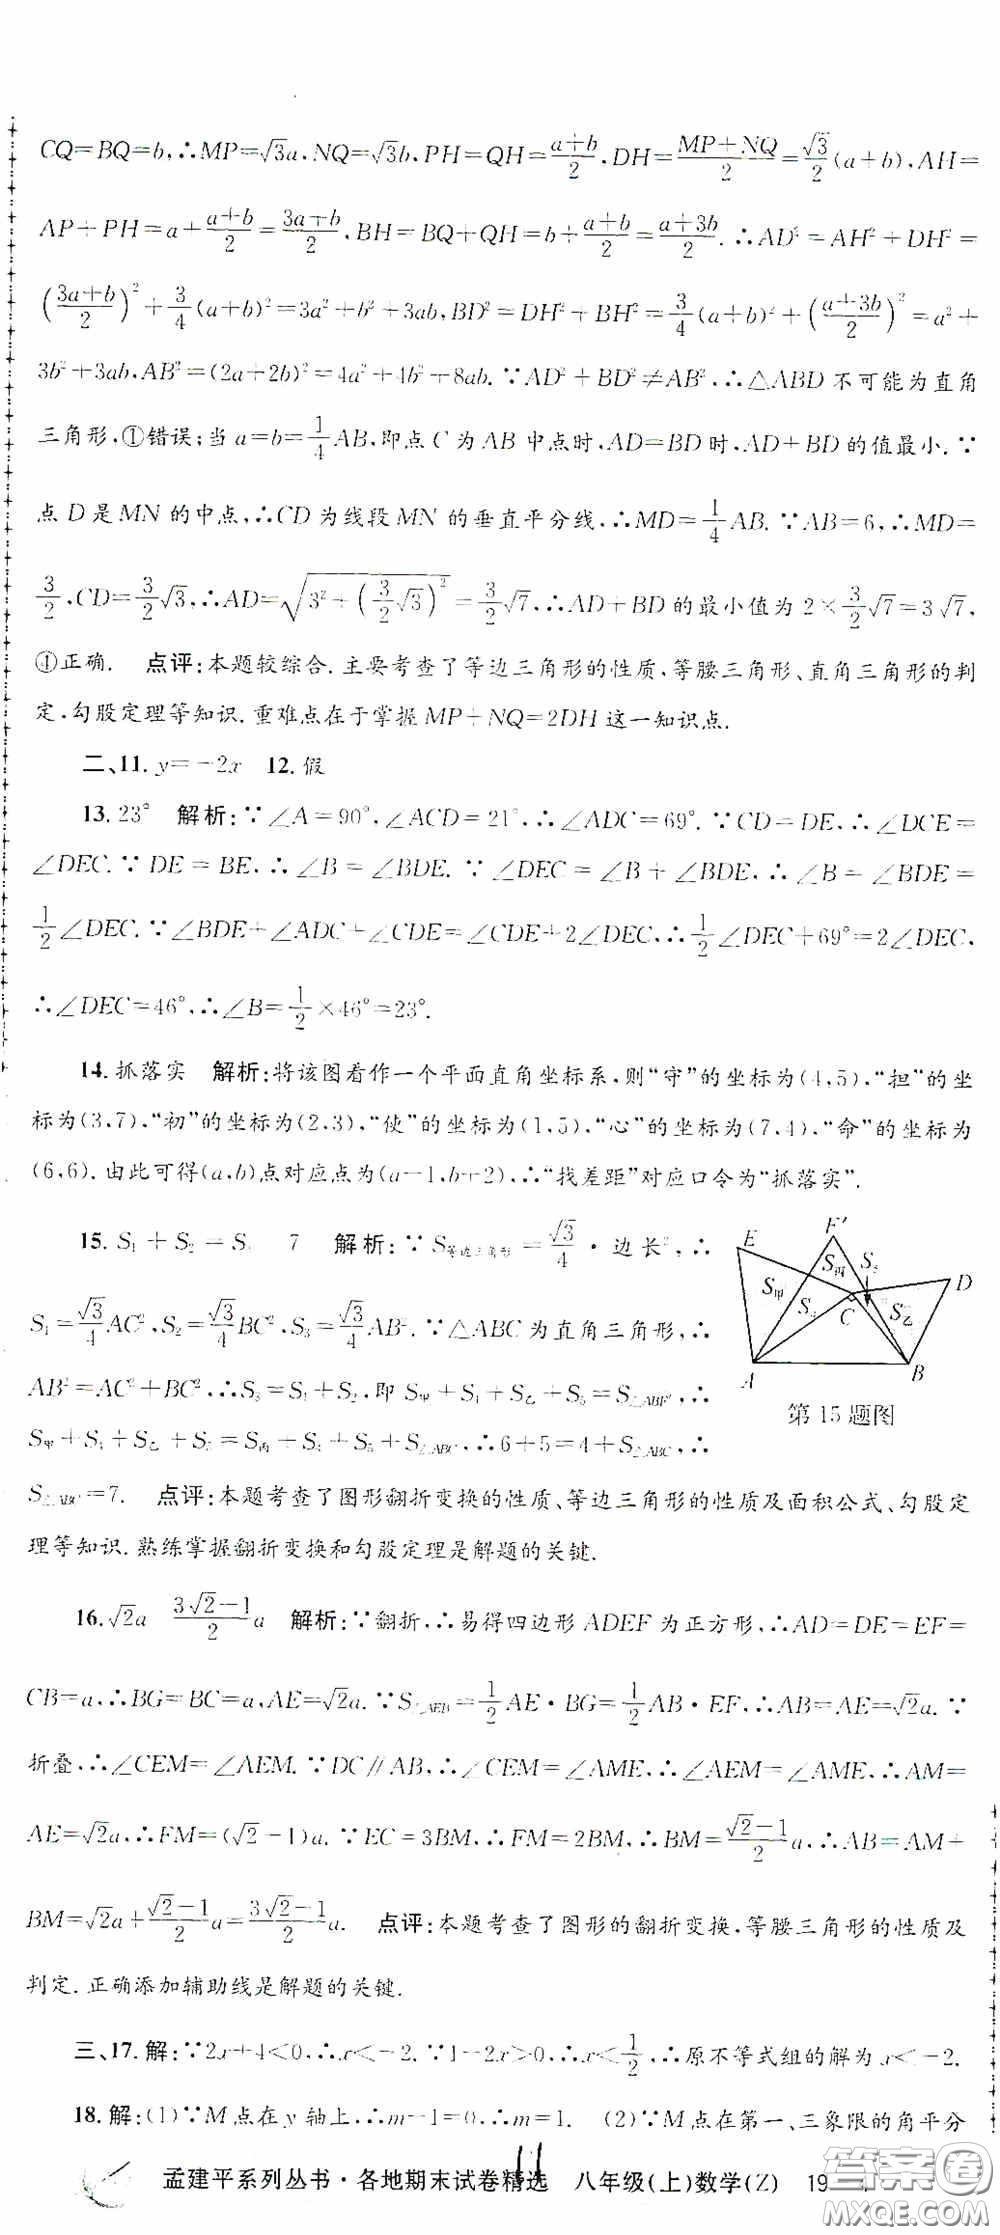 CQ=BQ=b,∴MP=√3a,NQ=√3b,PH=QH=(a+b)/2,DH=(MP+NQ)/2=√3/2(a+b),AH=
AP+PH=a+(a+b)/2=(3a+b)/2,BH=BQ+QH=b+(a+b)/2=(a+3b)/2.∴AD²=AH²+DH²=
((3a+b)/2)²+3/4(a+b)²=3a²+b²+3ab,BD²=DH²+BH²=3/4(a+b)²+((a+3b)/2)²=a²+
3b²+3ab,AB²=(2a+2b)²=4a²+4b²+8ab.∵AD²+BD²≠AB²,∴△ABD不可能为直角
三角形,①错误;当a=b=1/4AB,即点C为AB中点时,AD=BD时,AD+BD的值最小.∵
点D是MN的中点,∴CD为线段MN的垂直平分线,∴MD=1/4AB.∵AB=6,∴MD=
3/2,CD=3/2√3,∴AD=√(3²+(3/2√3)²)=3/2√7,∴AD+BD的最小值为2×3/2√7=3√7,
④正确. 点评:本题较综合.主要考查了等边三角形的性质,等腰三角形、直角三角形的判
定,勾股定理等知识.重难点在于掌握MP+NQ=2DH这一知识点.
二、11.y=-2x 12.假
13.23° 解析:∵∠A=90°,∠ACD=21°,∴∠ADC=69°.∵CD=DE,∴∠DCE=
∠DEC.∵DE=BE,∴∠B=∠BDE.∵∠DEC=∠B+∠BDE,∴∠B=∠BDE=
1/2∠DEC.∵∠BDE+∠ADC+∠CDE=∠CDE+2∠DEC,∴1/2∠DEC+69°=2∠DEC,
∴∠DEC=46°,∴∠B=1/2×46°=23°.
14.抓落实 解析:将该图看作一个平面直角坐标系,则“守”的坐标为(4,5),“担”的坐
标为(3,7),“初”的坐标为(2,3),“使”的坐标为(1,5),“心”的坐标为(7,4),“命”的坐标为
(6,6).由此可得(a,b)点对应点为(a-1,b+2),∴“找差距”对应口令为“抓落实”.
15.S₁+S₂=S 7 解析:∵S等边三角形=√3/4·边长²,∴
S₁=√3/4AC²,S₂=√3/4BC²,S₃=√3/4AB².∵△ABC为直角三角形,∴
AB²=AC²+BC²,∴S₃=S₁+S₂,即
E F' D S甲 S丙 S₅ S₄ S乙 C A B
第15题图
∴6+5=4+S△ABC,∴
S△ABC=7. 点评:本题考查了图形翻折变换的性质、等边三角形的性质及面积公式、勾股定
理等知识.熟练掌握翻折变换和勾股定理是解题的关键.
16.√2a (3√2-1)/2a 解析:∵翻折,∴易得四边形ADEF为正方形,∴AD=DE=EF=
CB=a,∴BG=BC=a,AE=√2a.∵S△AEB=1/2AE·BG=1/2AB·EF,∴AB=AE=√2a.∵
折叠,∴∠CEM=∠AEM.∵DC∥AB,∴∠CEM=∠AME,∴∠AEM=∠AME,∴AM=
AE=√2a,∴FM=(√2-1)a.∵EC=3BM,∴FM=2BM,∴BM=(√2-1)/2a,∴AB=AM+
BM=√2a+(√2-1)/2a=(3√2-1)/2a. 点评:本题考查了图形的翻折变换,等腰三角形的性质及
判定.正确添加辅助线是解题的关键.
三、17.解:∵2x+4<0,∴x<-2.∵1-2x>0,∴x<1/2,∴原不等式组的解为x<-2.
18.解:(1)∵M点在y轴上,∴m-1=0,∴m=1. (2)∵M点在第一、三象限的角平分
孟建平系列丛书·各地期末试卷精选 八年级(上)数学(Z) 19
11
答案圈